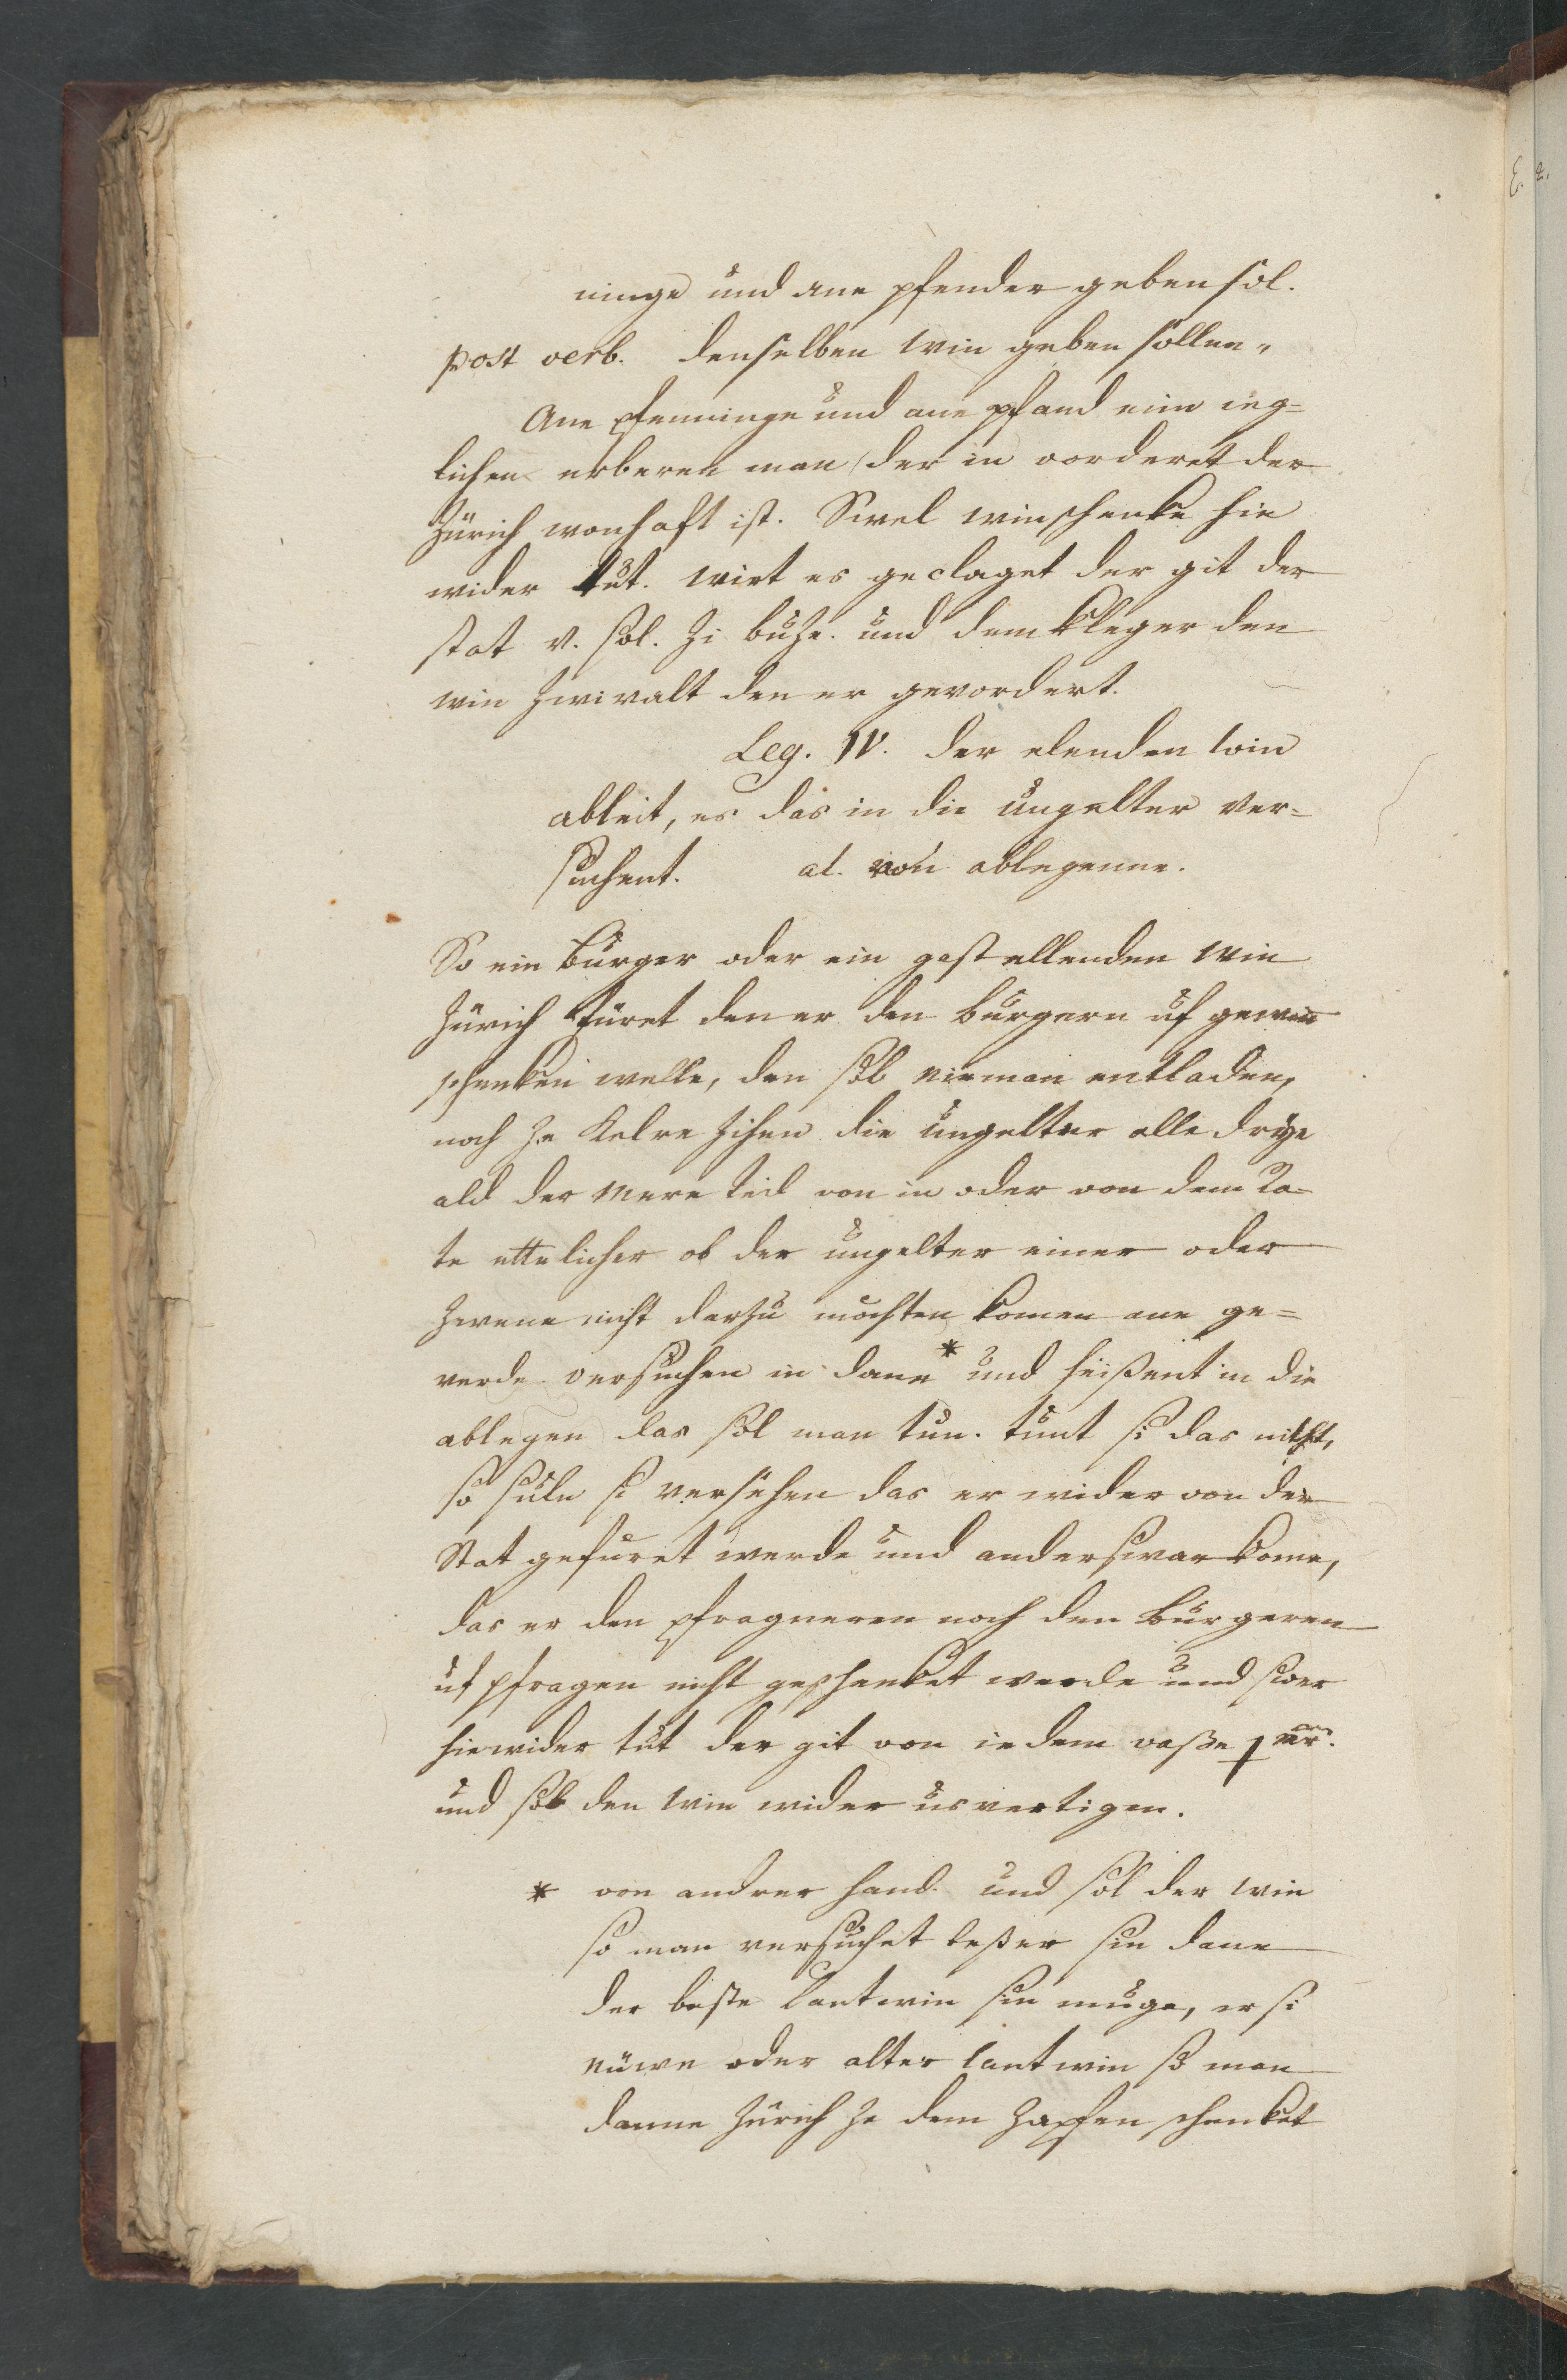 ninge und ane pfender geben sol.
post verb. denselben win geben sollen,
Ane pfenninge und ane pfand eim ieg=
lichen erberen man der in vorderet der
Zürich wonhaft ist. Swel winschenke hie
wider tut. wirt es geclaget der git der
stat v. sol. zi buze. und dem kleger den
win zwivalt den er gevordert.
Leg. IV. der elenden win
ableit, es das in die ungelter ver=
suchent. al. von ablegenne.
So ein burger oder ein gast ellenden win
Zürich füret den er den burgern uf gewin
schenken welle, den sol nieman entladen,
noch ze kelre zihen die ungelter alle drye
ald der mere teil von in oder von dem Ra=
te ettelicher ob der ungelter einer oder
zwene nicht darzu mochten komen ane ge=
verde. versuchen in dane * und heißent in die
ablegen das sol man tun. tunt si das nicht,
so suln si versehen das er wider von der
Stat gefuret werde und anderswar kome,
das er den pfragneren noch den burgeren
uf pfragen nicht geschenket werde und swer
hiewider tut der git von iedem vaße 1 mr.
und sol den win wider us vertigen.
* von andrer hand. und sol der win
so man versuchet beßer sin dane
der beste Lantwin sin muge, er si
nüwe oder alter lantwin so man
danne Zürich ze dem Zapfen schenket